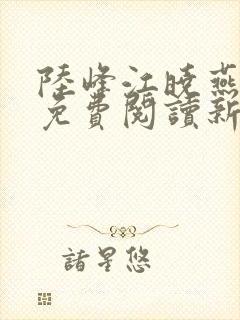 陸峰江曉燕
免費閱讀新
諸星悠